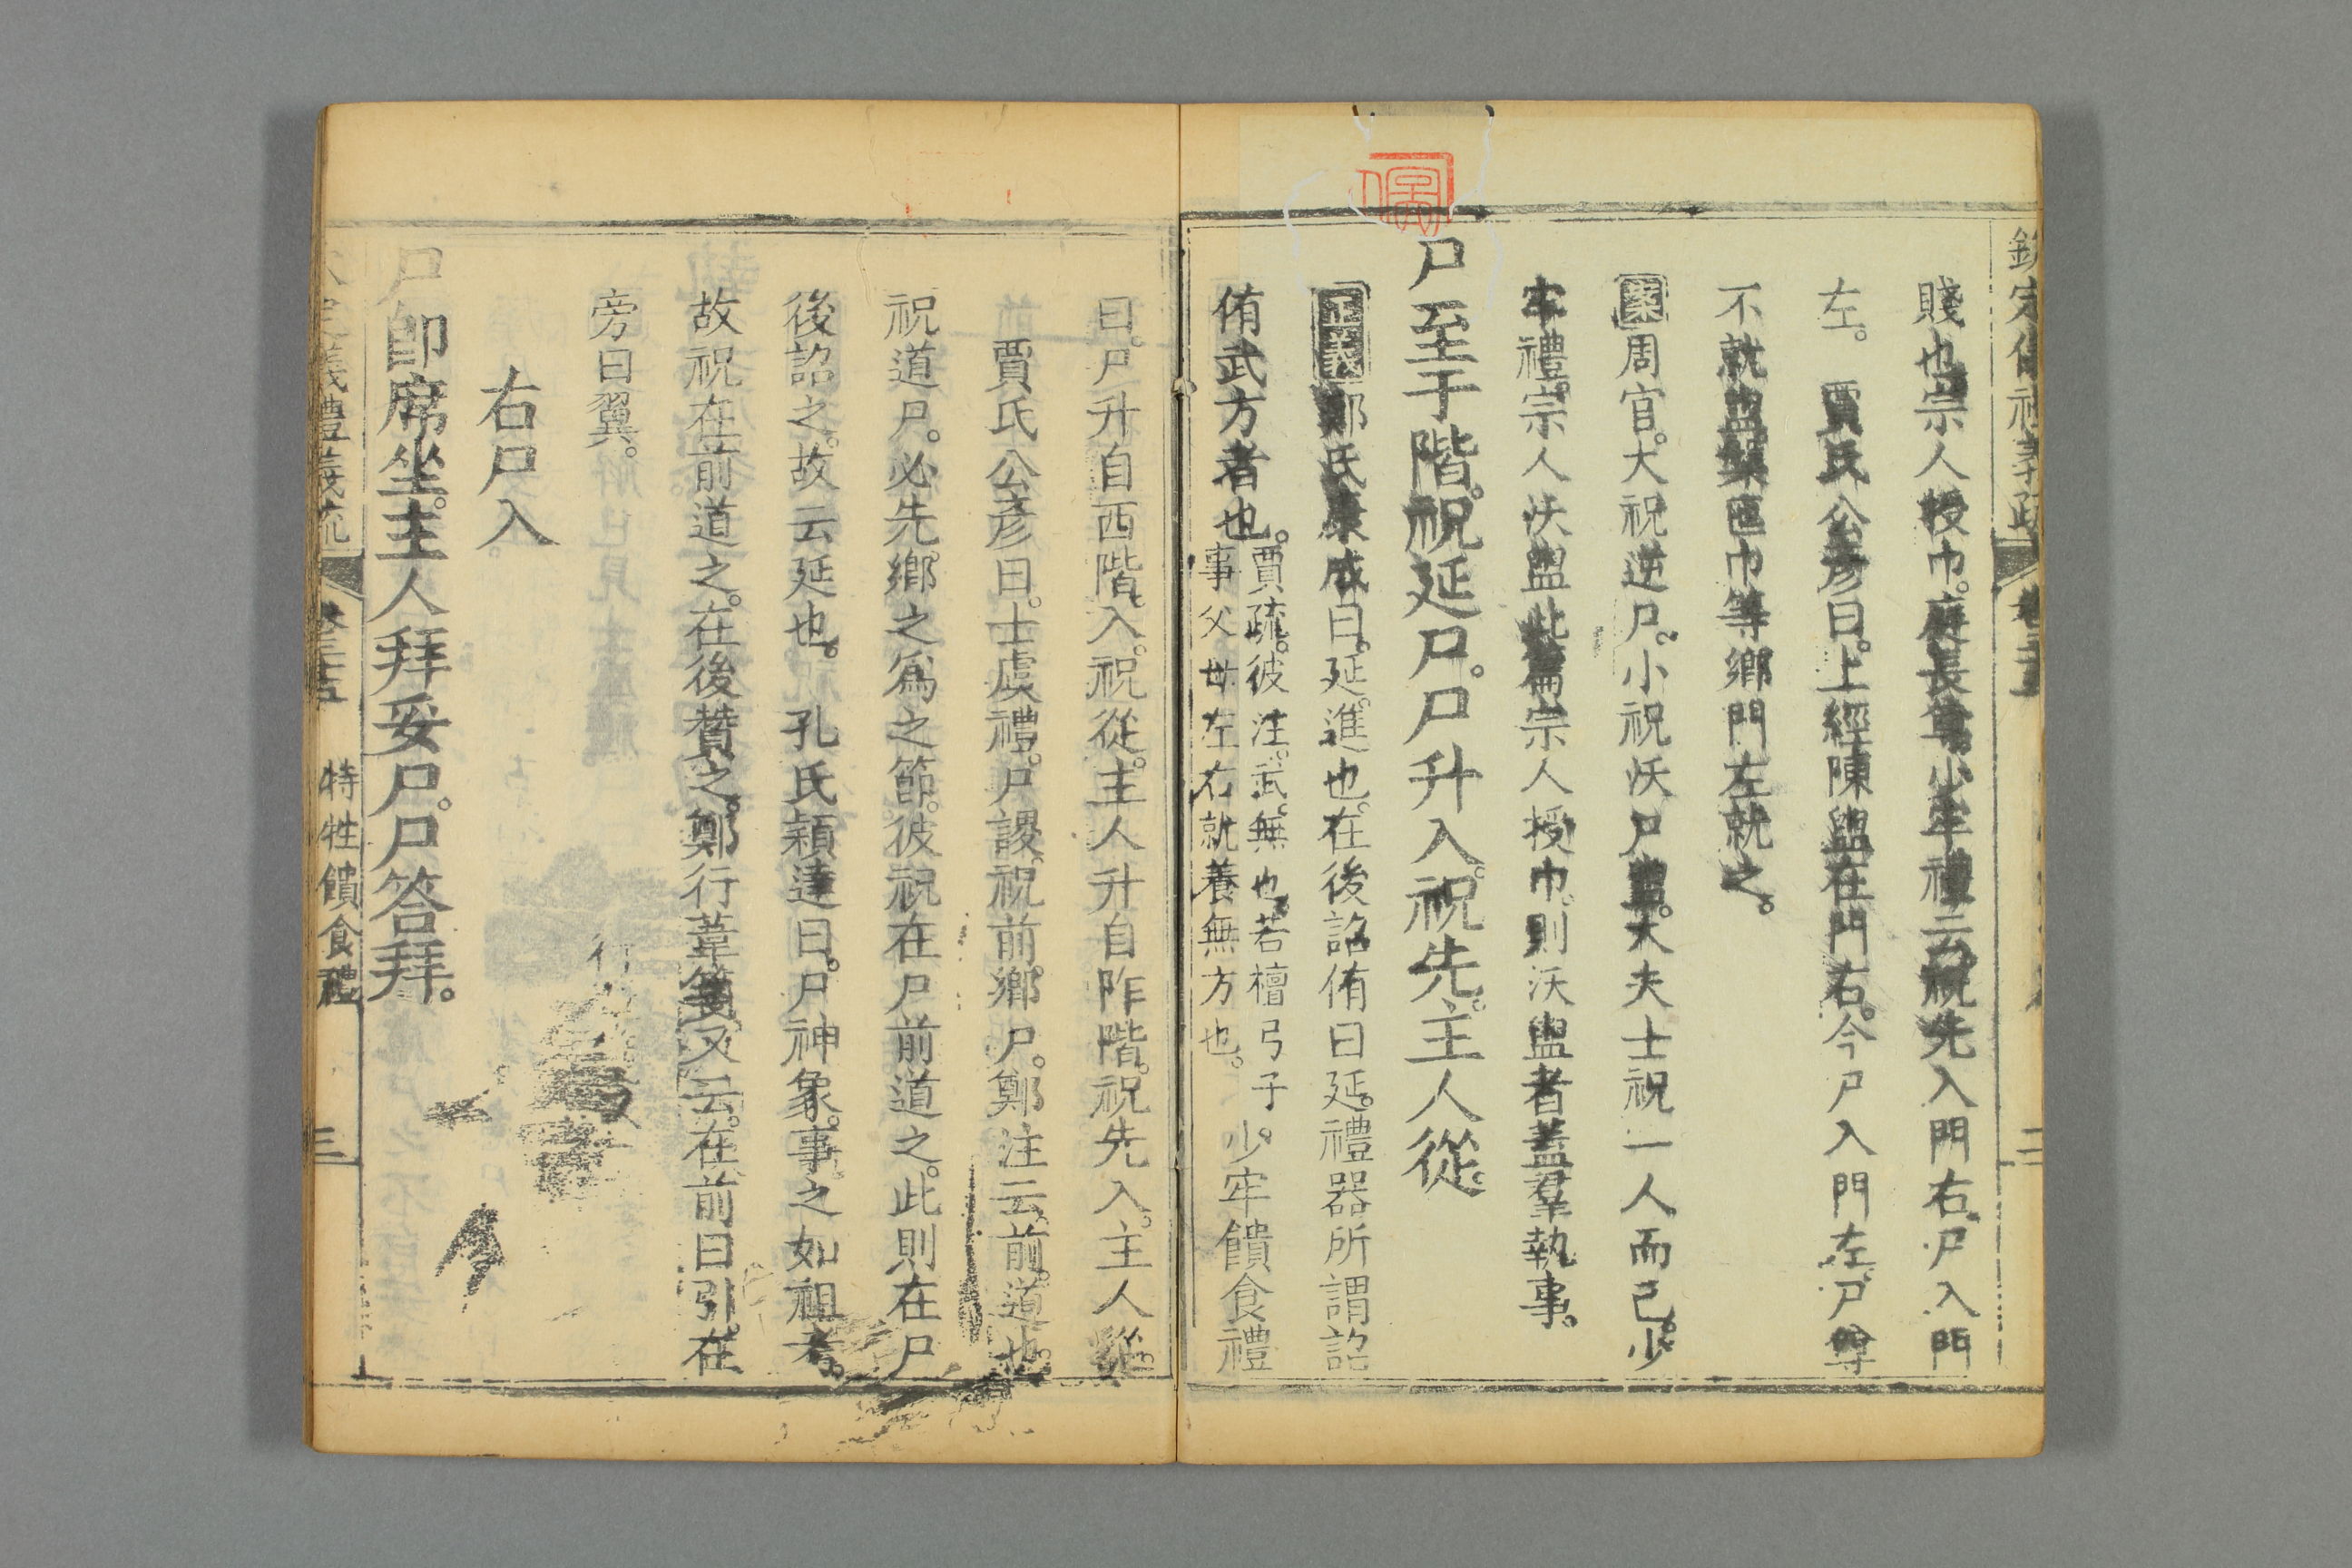 賤也宗人授巾。庭長尊。少牢禮云祝先入門右。尸入門
左。 賈氏公彥曰。上經陳盥在門右。今尸入門左。尸尊
不就盥槃匜巾等鄉門左就之。
案周官。大祝逆尸。小祝沃尸盥。大夫士祝一人而已。少
牢禮。宗人沃盥此篇宗人授巾。則沃盥者蓋羣執事。
尸至于階。祝延尸。尸升入。祝先。主人從。
正義鄭氏康成曰。延。進也。在後詔侑曰延。禮器所謂詔
侑武方者也。賈疏。彼注。武。無也。若檀弓子
事父母左右就養無方也。少牢饋食禮
曰。尸升自西階入。祝從。主人升自阼階。祝先入。主人從。
賈氏公彥曰。士虞禮。尸謖。祝前。鄉尸。鄭注云。前。道也。
祝道尸。必先鄉之爲之節。彼祝在尸前道之。此則在尸
後詔之。故云延也。 孔氏穎達曰。尸神象。事之如祖考。
故祝在前道之。在後贊之。鄭行葦箋又云。在前曰引。在
旁曰翼。
右尸入
尸卽席坐。主人拜妥尸。尸答拜。
特牲饋食禮
三